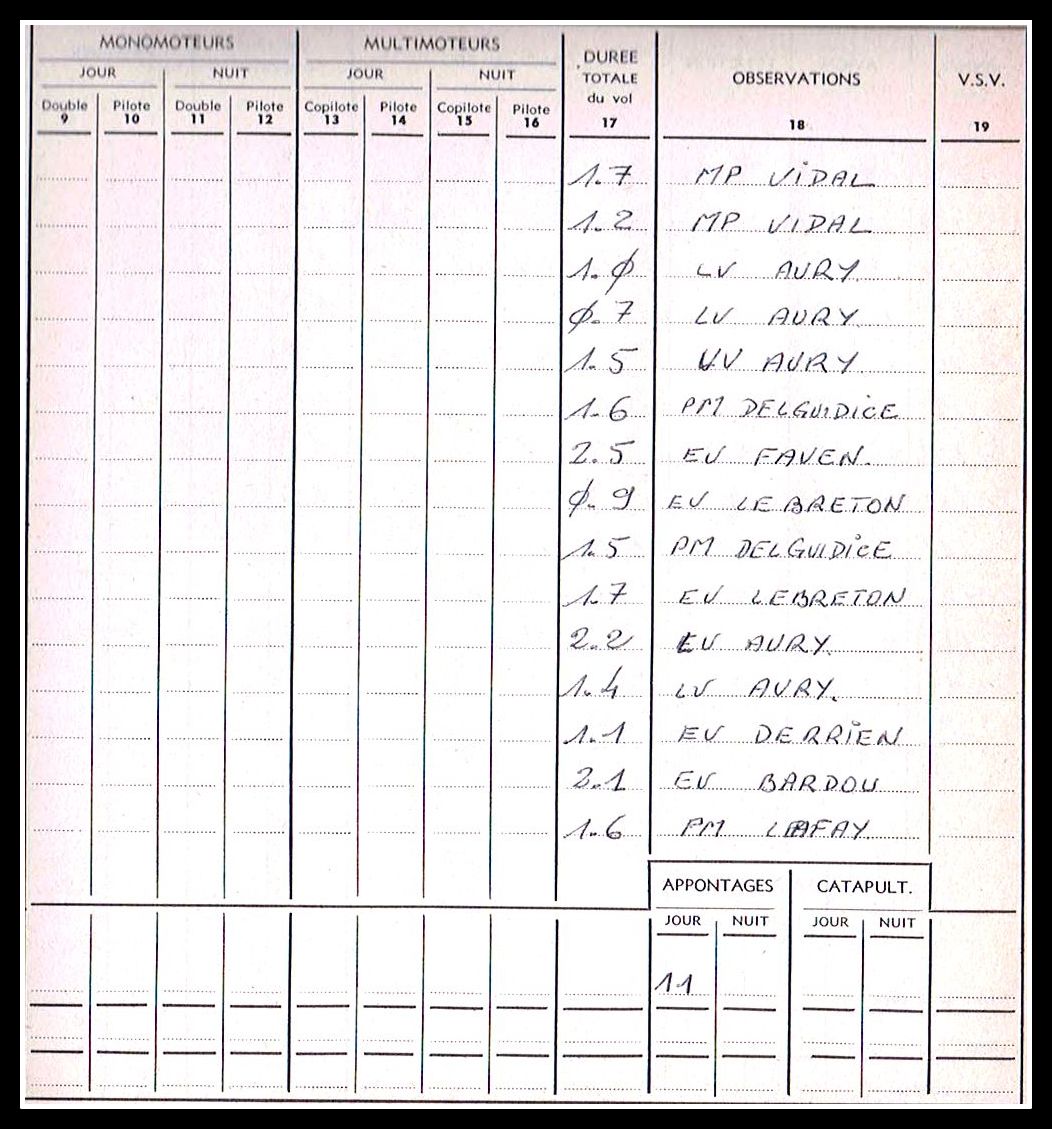 MONOMOTEURS MULTIMOTEURS DURÉE TOTALE du vol OBSERVATIONS V.S.V.
JOUR NUIT JOUR NUIT
Double Pilote Double Pilote Copilote Pilote Copilote Pilote
9 10 11 12 13 14 15 16 17 18 19
1.7 MP VIDAL
1.2 MP VIDAL
1.Ø LV AURY
Ø.7 LV AURY
1.5 LV AURY
1.6 PM DELGUIDICE
2.5 EV FAVEN.
Ø.9 EV LEBRETON
1.5 PM DELGUIDICE
1.7 EV LEBRETON
2.2 EV AURY.
1.4 LV AURY.
1.1 EV DERRIEN
2.1 EV BARDOU
1.6 PM LAFAY
APPONTAGES CATAPULT.
JOUR NUIT JOUR NUIT
11